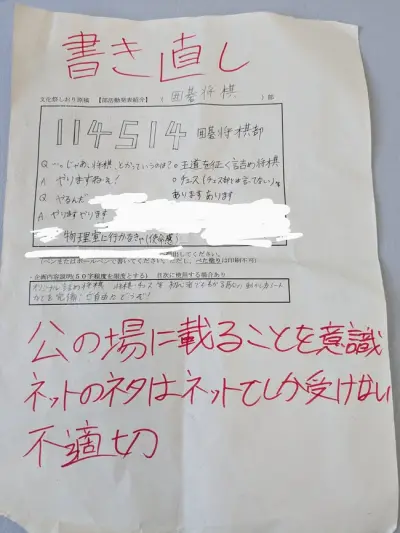 書き直し
文化祭しおり原稿 【部活動発表紹介】 ( 囲碁将棋 )部
114514 囲碁将棋部
Q じゃあ、将棋、とかっていうのは? 。王道を征く詰め将棋
A やりますねぇ! 。チェス(チェス部とは言ってない)も
Q やるんだ あります あります
A やりますやります
物理室に行かなきゃ(使命感)
出してください。
(ペンまたはボールペンで書いてください。ただし、べた塗りは印刷不可)
・企画内容説明(50字程度を限度とする) 目次に使用する場合あり
オリジナル詰め将棋 将棋・チェスを初心者でもわかる駒の動かし方シート
などを完備!ご自由にどうぞ!!
公の場に載ることを意識
ネットのネタはネットでしか受けない
不適切